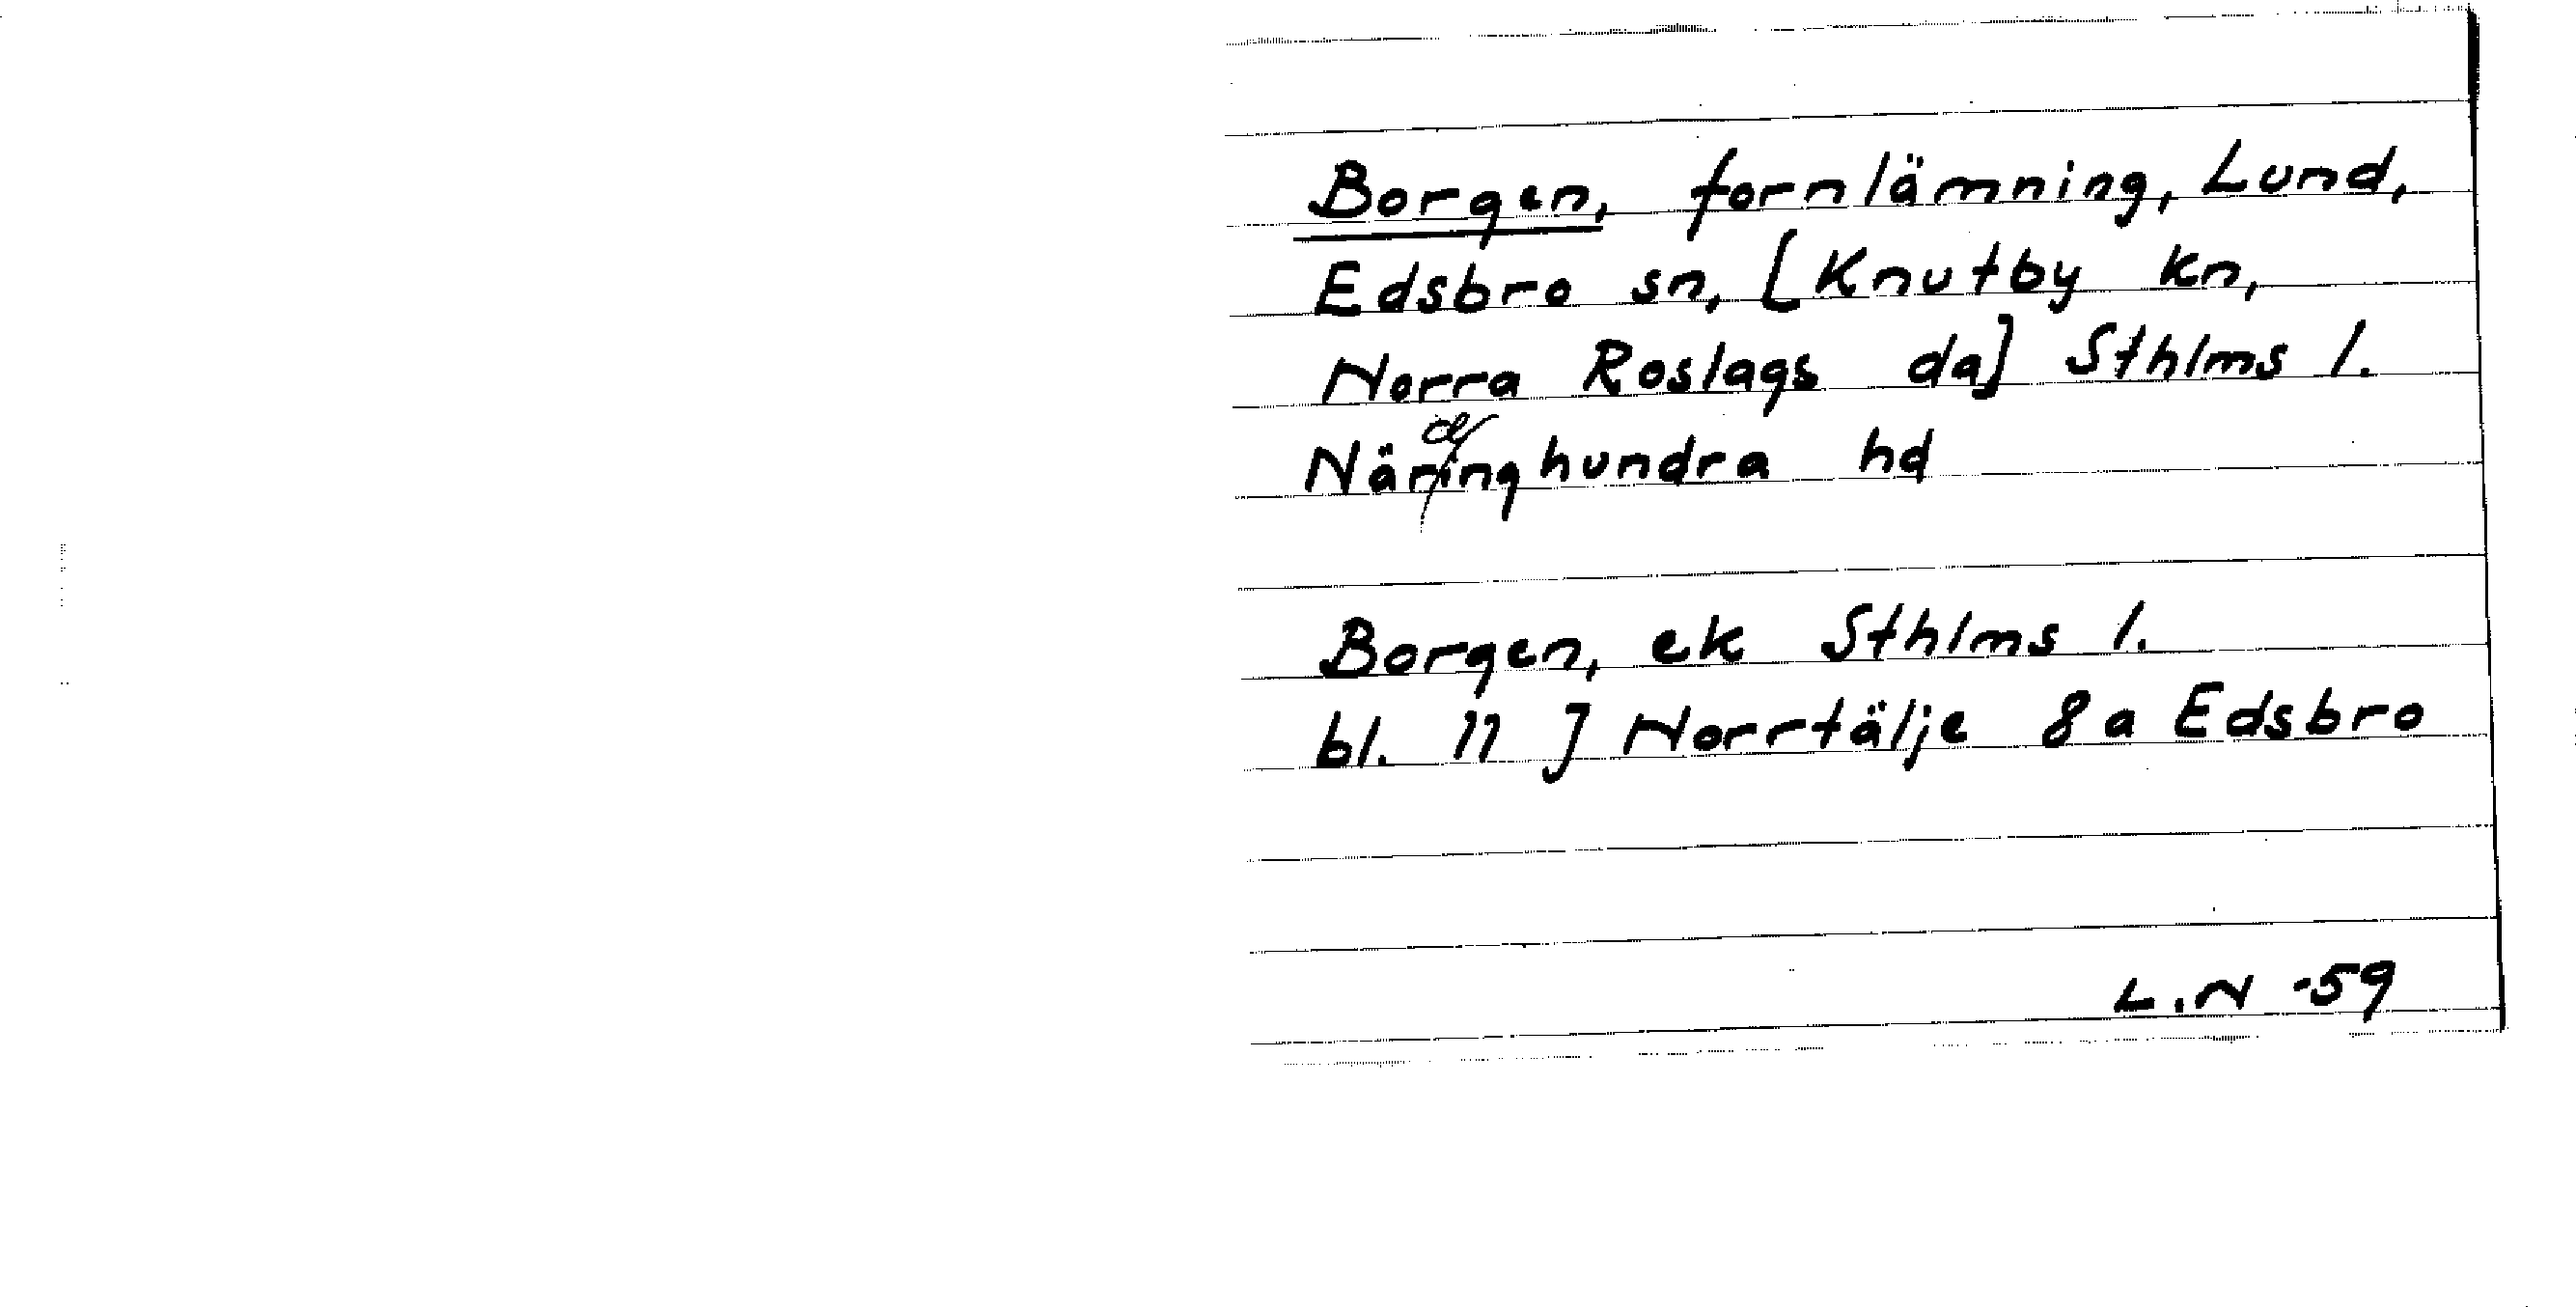 Borgen, fornlämning, Lund,
Edsbro sn, [Knutby kn,
Norra Roslags da] Sthlms l.
Närdinghundra hd
Borgen, ek Sthlms l.
bl. 11 J Norrtälje 8a Edsbro
L.N -59